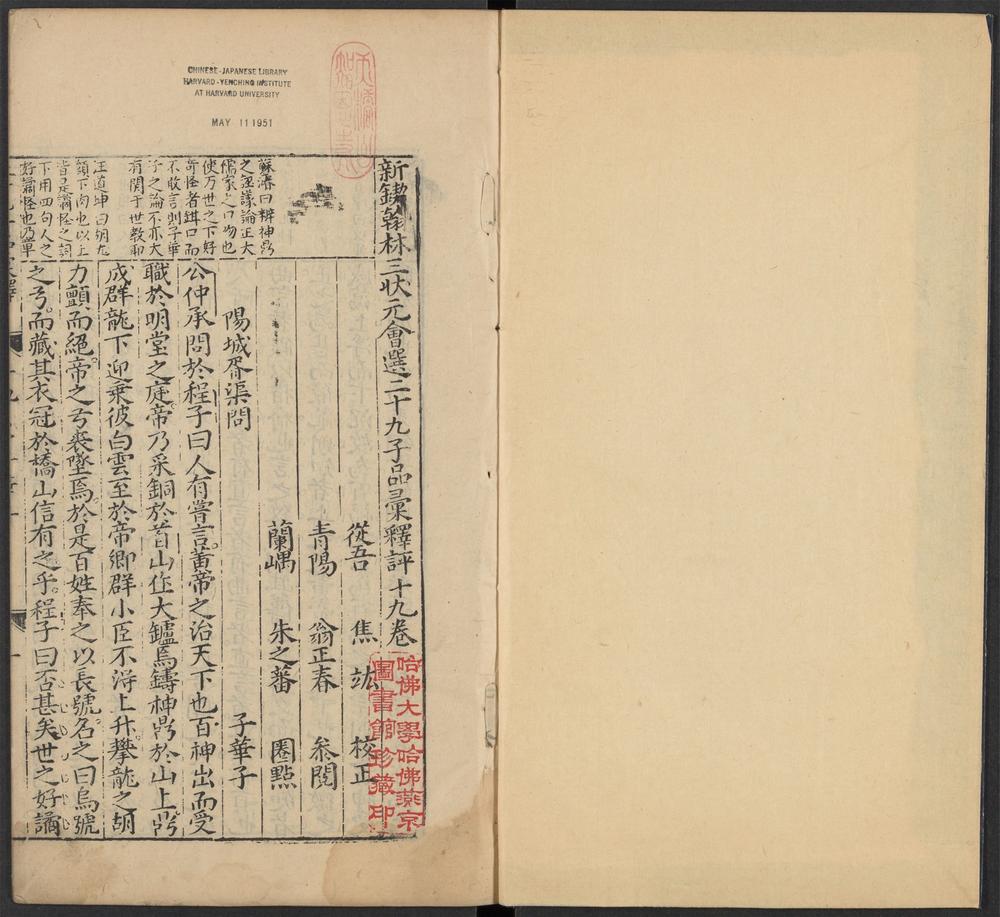 CHINESE-JAPANESE LIBRARY
HARVARD-YENCHING INSTITUTE
AT HARVARD UNIVERSITY
MAY 11 1951
新鍥翰林三狀元會選二十九子品彙釋評十九卷
從吾 焦竑 校正
青陽 翁正春 叅閱
蘭嵎 朱之蕃 圈點
陽城胥渠問 子華子
公仲承問於程子曰人有嘗言黃帝之治天下也百神出而受
職於明堂之庭帝乃采銅於首山作大鑪焉鑄神鼎於山上鼎
成群龍下迎乗彼白雲至於帝鄉群小臣不得上升攀龍之胡
力顫而絕帝之弓裘墜焉於是百姓奉之以長號名之曰烏號
之弓而藏其衣冠於橋山信有之乎程子曰否甚矣世之好譎
蘇濬曰辨神鼎
之誣議論正大
儒家之口吻也
使万世之下好
奇怪者鉗口而
不敢言則子華
子之論不亦大
有関于世教耶
汪道坤曰胡九
頷下肉也以上
皆是譎怪之詞
下用四句人之
好譎怪也乃單
哈佛大學哈佛燕京
圖書館珍藏印